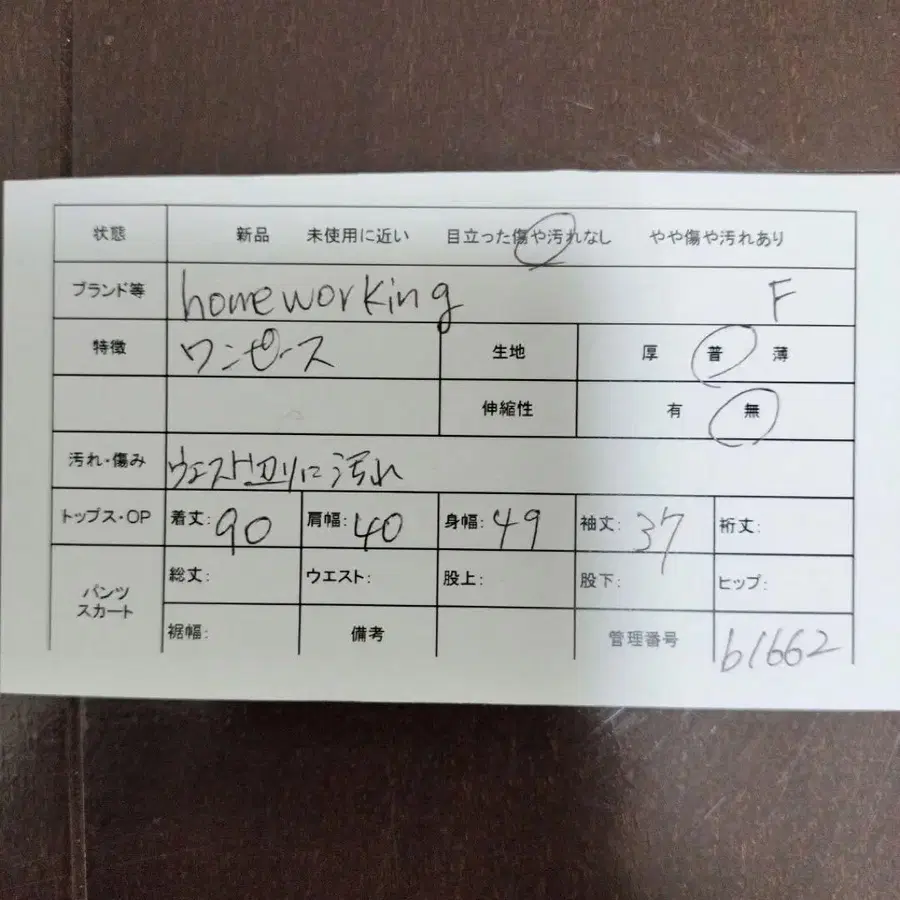 状態 新品 未使用に近い 目立った傷や汚れなし やや傷や汚れあり
ブランド等 homeworking F
特徴 ワンピース 生地 厚 普 薄
伸縮性 有 無
汚れ・傷み ウエスト辺りに汚れ
トップス・OP 着丈: 90 肩幅: 40 身幅: 49 袖丈: 37 裄丈:
パンツ スカート 総丈: ウエスト: 股上: 股下: ヒップ:
裾幅: 備考 管理番号 b1662